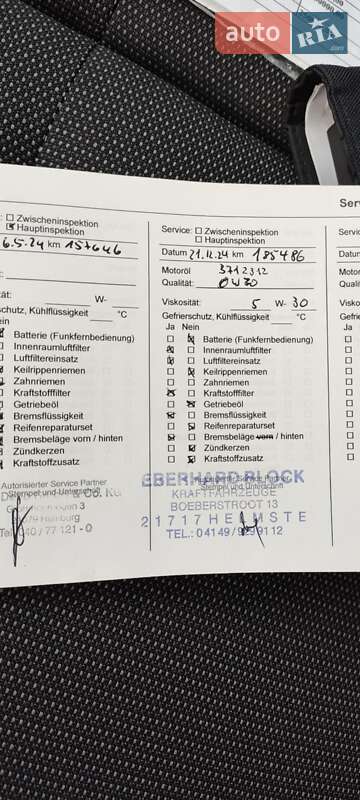 auto RIA.com
Ser
: ☐ Zwischeninspektion
☒ Hauptinspektion
6.5.24 km 157646
sität: W-
schutz, Kühlflüssigkeit °C
Nein
Batterie (Funkfernbedienung)
Innenraumluftfilter
Luftfiltereinsatz
Keilrippenriemen
Zahnriemen
Kraftstofffilter
Getriebeöl
Bremsflüssigkeit
Reifenreparaturset
Bremsbeläge vorn / hinten
Zündkerzen
Kraftstoffzusatz
Autorisierter Service Partner
Stempel und Unterschrift
Service: ☐ Zwischeninspektion
☐ Hauptinspektion
Datum 21.12.24 km 185486
Motoröl 3712312
Qualität: 0W20
Viskosität: 5 W- 30
Gefrierschutz, Kühlflüssigkeit °C
Ja Nein
Batterie (Funkfernbedienung)
Innenraumluftfilter
Luftfiltereinsatz
Keilrippenriemen
Zahnriemen
Kraftstofffilter
Getriebeöl
Bremsflüssigkeit
Reifenreparaturset
Bremsbeläge vorn / hinten
Zündkerzen
Kraftstoffzusatz
Autorisierter Service Partner
Stempel und Unterschrift
EBERHARD BLOCK
KRAFTFAHRZEUGE
BOEBERSTROOT 13
21717 HELMSTE
TEL.: 04149/